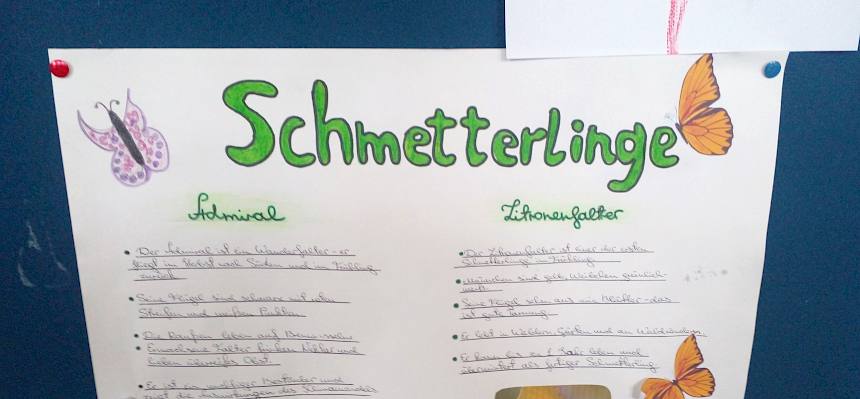 Schmetterlinge
Admiral
• Der Admiral ist ein Wanderfalter - er
fliegt im Herbst nach Süden und im Frühling
zurück
• Seine Flügel sind schwarz mit roten
Streifen und weißen Punkten
• Die Raupen leben auf Brennnesseln
• Erwachsene Falter trinken Nektar und
lieben überreifes Obst.
• Er ist ein wichtiger Bestäuber und
zeigt die Auswirkungen des Klimawandels
Zitronenfalter
• Der Zitronenfalter ist einer der ersten
Schmetterlinge im Frühling
• Männchen sind gelb, Weibchen grünlich-
weiß.
• Seine Flügel sehen aus wie Blätter - das
ist gute Tarnung
• Er lebt in Wäldern, Gärten und an Waldrändern.
• Er kann bis zu 1 Jahr leben und
überwintert als fertiger Schmetterling